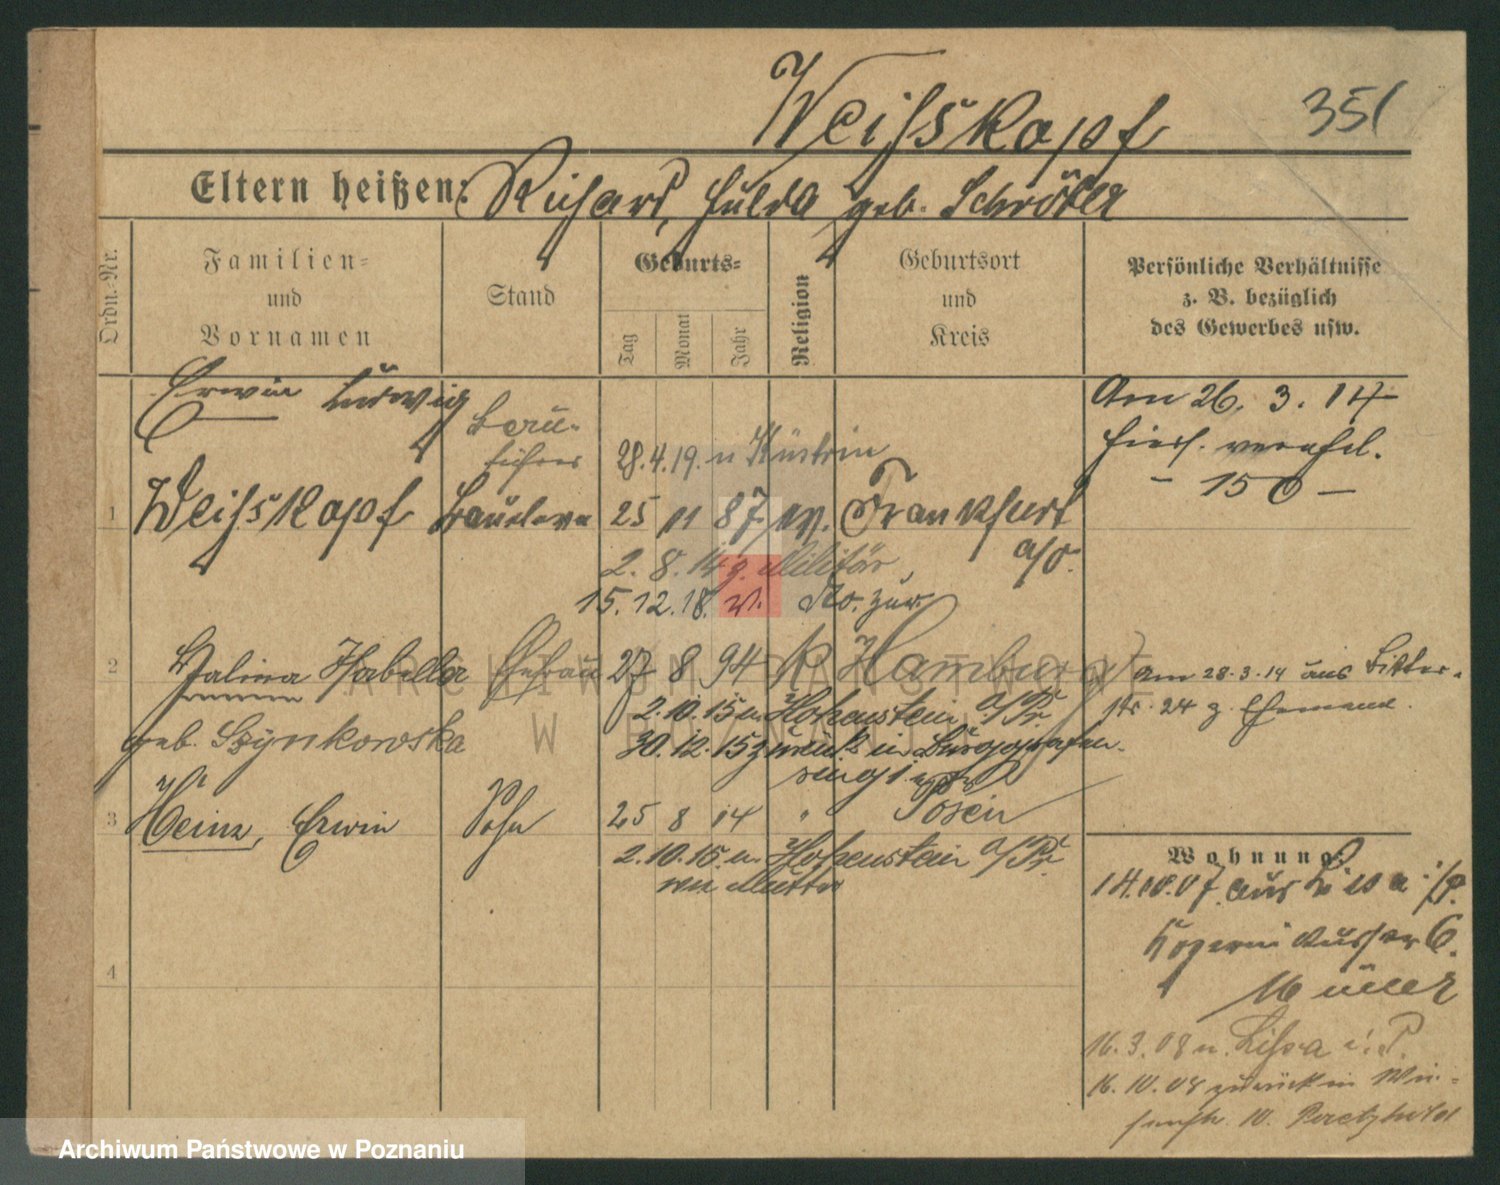 Weißkopf 351
Eltern heißen: Richard, Hulda geb. Schröter
Ordn.-Nr.
Familien-
und
Vornamen
Stand
Geburts-
Tag
Monat
Jahr
Religion
Geburtsort
und
Kreis
Persönliche Verhältnisse
z. B. bezüglich
des Gewerbes usw.
Erwin Ludwig
Am 26. 3. 14
Bau-
hier verehel.
führer 28.4.19. n Küstrin
- 150 -
1 Weißkopf Baueleve 25 11 87 ev. Frankfurt
a/O.
2. 8. 14 z. Militär
15. 12. 18. v. do. zur.
2 Halina Isabella Ehefrau 27 8 94 k Hamburg
Am 28.3.14 aus Ritter-
str. 24 z. Ehemann.
2.10.15 n. Hohenstein O/Pr.
geb. Szynkowska 30.12.15 zurück in Burggrafen-
ring 1
3 Heinz, Erwin Sohn 25 8 14 " Posen
2.10.15. n. Hohenstein O/Pr.
wie Mutter
Wohnung:
14.10.07. aus Lissa i/P.
6.
Müller
4
16.3.08 n. Lissa i.P.
16.10.08 zurück in
10.
ARCHIWUM PAŃSTWOWE
W POZNANIU
Archiwum Państwowe w Poznaniu